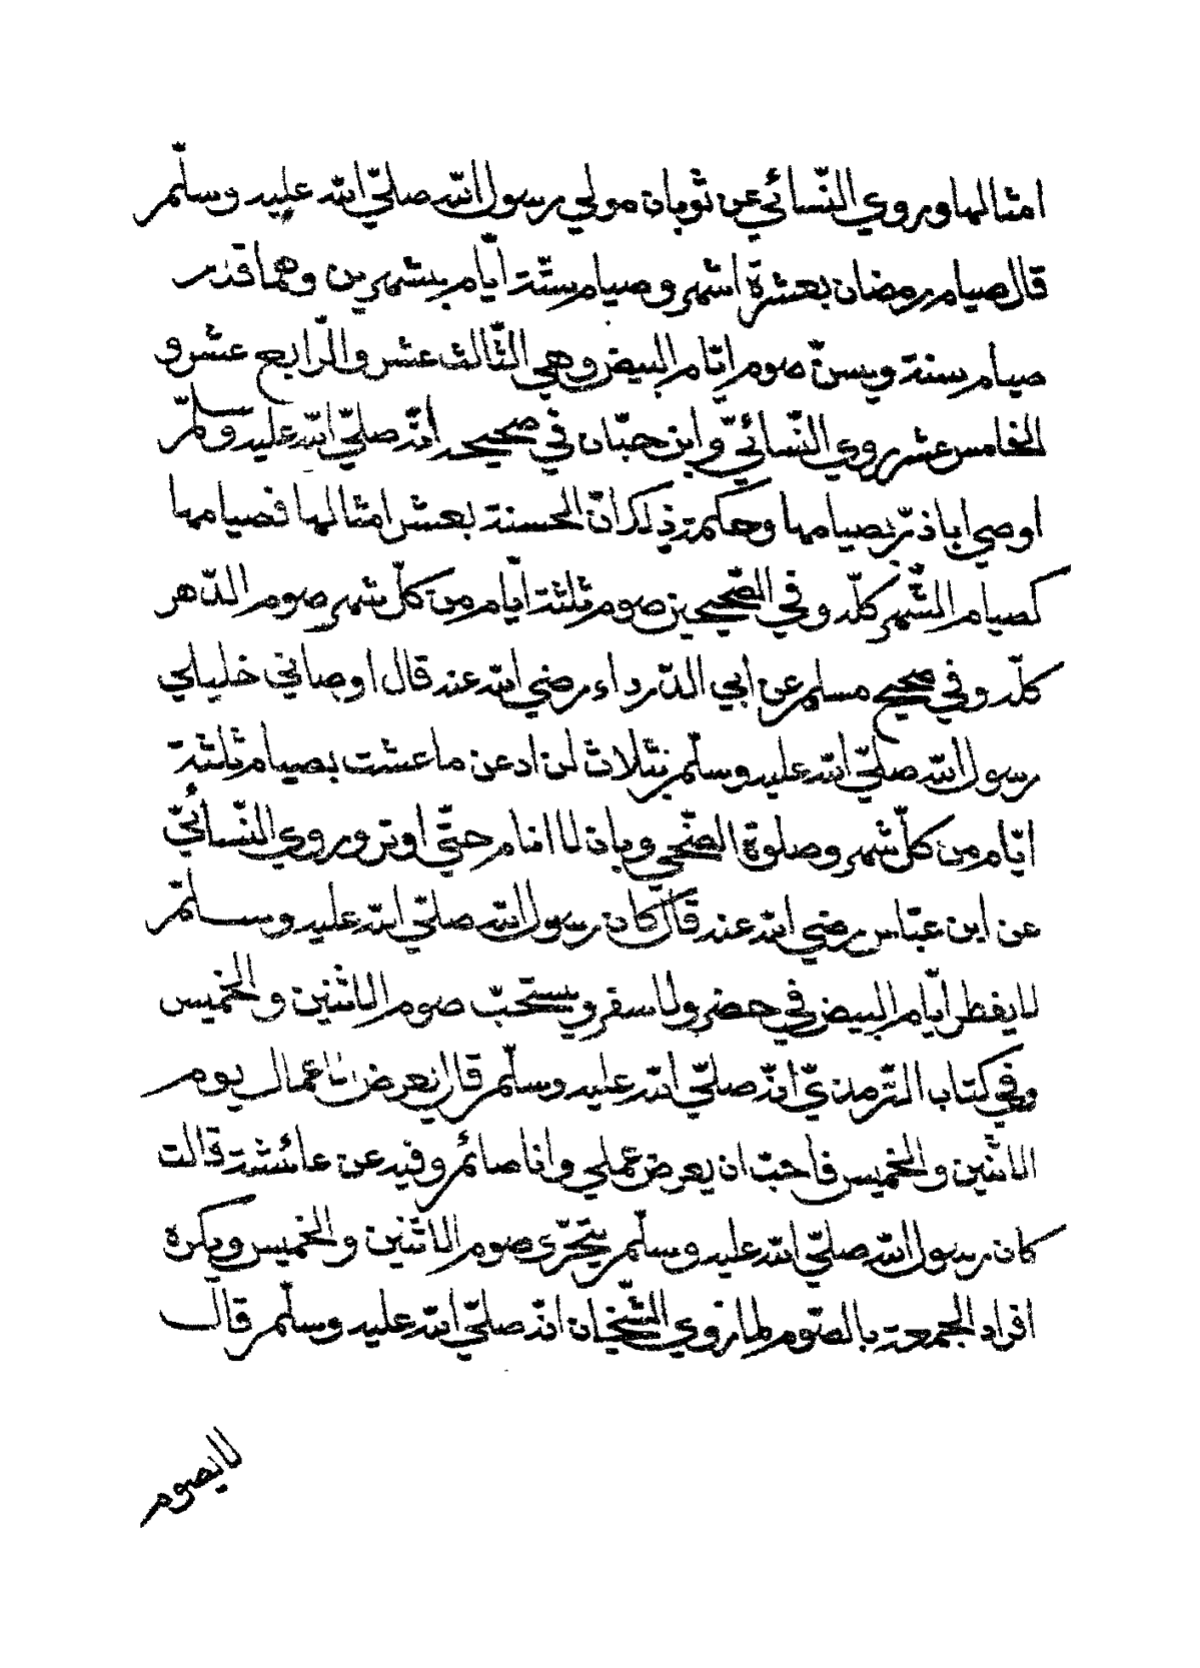 امثالها وروي النّسائي عن ثوبان مولي رسول الله صلّي الله عليه وسلّم
قال صيام رمضان بعشرة اشهر وصيام ستّة ايّام بشهرين وهما قدر
صيام سنة ويسنّ صوم ايّام البيض وهي الثّالث عشر والرّابع عشر و
الخامس عشر روي النّسائيّ وابن حبّان في صحيحه انّه صلّي الله عليه وسلّم
اوصي ابا ذرّ بصيامها وحكمة ذلك انّ الحسنة بعشر امثالها فصيامها
كصيام الشّهر كلّه وفي الصّحيحين صوم ثلثة ايّام من كلّ شهر صوم الدّهر
كلّه وفي صحيح مسلم عن ابي الدّرداء رضي الله عنه قال اوصاني خليلي
رسول الله صلّي الله عليه وسلّم بثلاث لن ادعن ما عشت بصيام ثلثة
ايّام من كلّ شهر وصلوة الضّحي وبان لا انام حتّي اوتر وروي النّسائيّ
عن ابن عبّاس رضي الله عنه قال كان رسول الله صلّي الله عليه وسلّم
لا يفطر ايّام البيض في حضر ولا سفر ويستحبّ صوم الاثنين والخميس
وفي كتاب التّرمذيّ انّه صلّي الله عليه وسلّم قال تعرض الاعمال يوم
الاثنين والخميس فاحبّ ان يعرض عملي وانا صائم وفيه عن عائشة قالت
كان رسول الله صلّي الله عليه وسلّم يتحرّى صوم الاثنين والخميس ويكره
افراد الجمعة بالصّوم لما روي الشّيخان انّه صلّي الله عليه وسلّم قال
لا يصوم